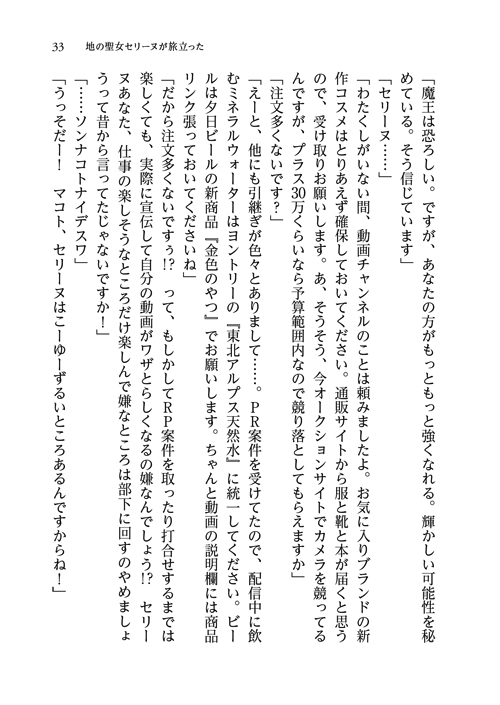 33　地の聖女セリーヌが旅立った
「魔王は恐ろしい。ですが、あなたの方がもっともっと強くなれる。輝かしい可能性を秘
めている。そう信じています」
「セリーヌ……」
「わたくしがいない間、動画チャンネルのことは頼みましたよ。お気に入りブランドの新
作コスメはとりあえず確保しておいてください。通販サイトから服と靴と本が届くと思う
ので、受け取りお願いします。あ、そうそう、今オークションサイトでカメラを競ってる
んですが、プラス30万くらいなら予算範囲内なので競り落としてもらえますか」
「注文多くないです？」
「えーと、他にも引継ぎが色々とありまして……。ＰＲ案件を受けてたので、配信中に飲
むミネラルウォーターはヨントリーの『東北アルプス天然水』に統一してください。ビー
ルは夕日ビールの新商品『金色のやつ』でお願いします。ちゃんと動画の説明欄には商品
リンク張っておいてくださいね」
「だから注文多くないですぅ!?　って、もしかしてＲＰ案件を取ったり打合せするまでは
楽しくても、実際に宣伝して自分の動画がワザとらしくなるの嫌なんでしょう!?　セリー
ヌあなた、仕事の楽しそうなところだけ楽しんで嫌なところは部下に回すのやめましょ
うって昔から言ってたじゃないですか！」
「……ソンナコトナイデスワ」
「うっそだー！　マコト、セリーヌはこーゆーずるいところあるんですからね！」